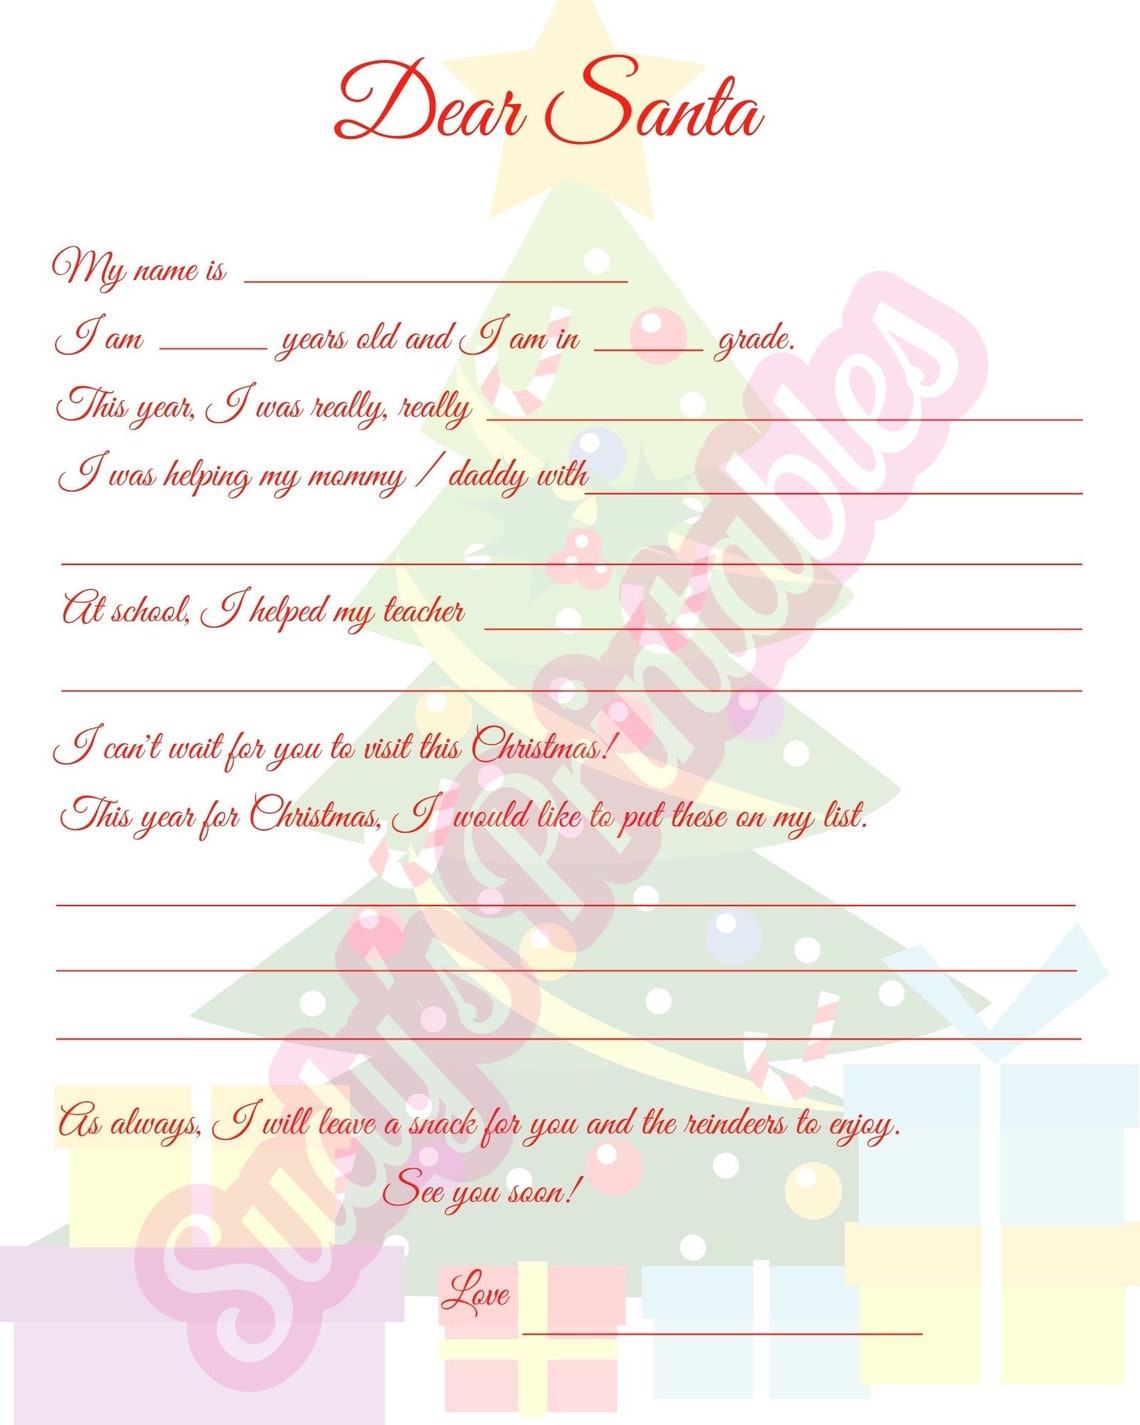 Dear Santa
My name is
I am years old and I am in grade.
This year, I was really, really
I was helping my mommy / daddy with
At school, I helped my teacher
I can't wait for you to visit this Christmas!
This year for Christmas, I would like to put these on my list.
As always, I will leave a snack for you and the reindeers to enjoy.
See you soon!
Love
Sudy's Printables